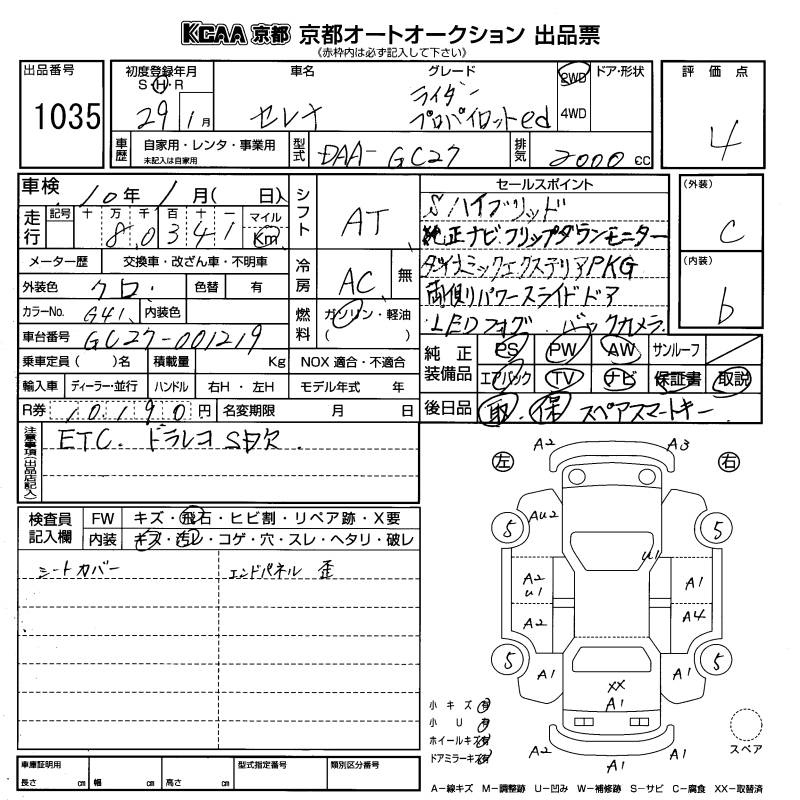 KCAA京都 京都オートオークション 出品票
《赤枠内は必ず記入して下さい》
出品番号 1035
初度登録年月 S・H・R 29 1月
車名 セレナ
グレード ライダー プロパイロットed
2WD 4WD
ドア・形状
評価点 4
車歴 自家用・レンタ・事業用 未記入は自家用
型式 DAA-GC27
排気 2000 cc
車検 10年 1月( 日)
シフト AT
セールスポイント
Sハイブリッド
純正ナビ.フリップダウンモニター
ダイナミックエクステリアPKG
両側パワースライドドア
LEDフォグ. バックカメラ
(外装) C
(内装) b
走行 記号 十 万 千 百 十 一 マイル Km
8 0 3 4 1
メーター歴 交換車・改ざん車・不明車
冷房 AC 無
外装色 クロ. 色替 有
カラーNo. G41 内装色
燃料 ガソリン・軽油 ( )
車台番号 GC27-001219
純正装備品 PS PW AW サンルーフ
エアバック TV ナビ 保証書 取説
乗車定員( )名 積載量 Kg NOX 適合・不適合
輸入車 ディーラー・並行 ハンドル 右H・左H モデル年式 年
R券 10,190円 名変期限 月 日
後日品 取.保 スペアスマートキー
注意事項(出品店記入)
ETC. ドラレコ SD欠
検査員記入欄 FW キズ・飛石・ヒビ割・リペア跡・X要
内装 キズ・汚レ・コゲ・穴・スレ・ヘタリ・破レ
シートカバー
エンドパネル 歪
左 右
A2 A3
AU2
5 5
U1
A2 U1 A1
A2 A4
5 5
A1 A1
XX
A1
A2 A1
小キズ 有
小U 有
ホイールキズ 有
ドアミラーキズ 有
スペア
車庫証明用 長さ cm 幅 cm 高さ cm
型式指定番号
類別区分番号
A−線キズ M−調整跡 U−凹み W−補修跡 S−サビ C−腐食 XX−取替済